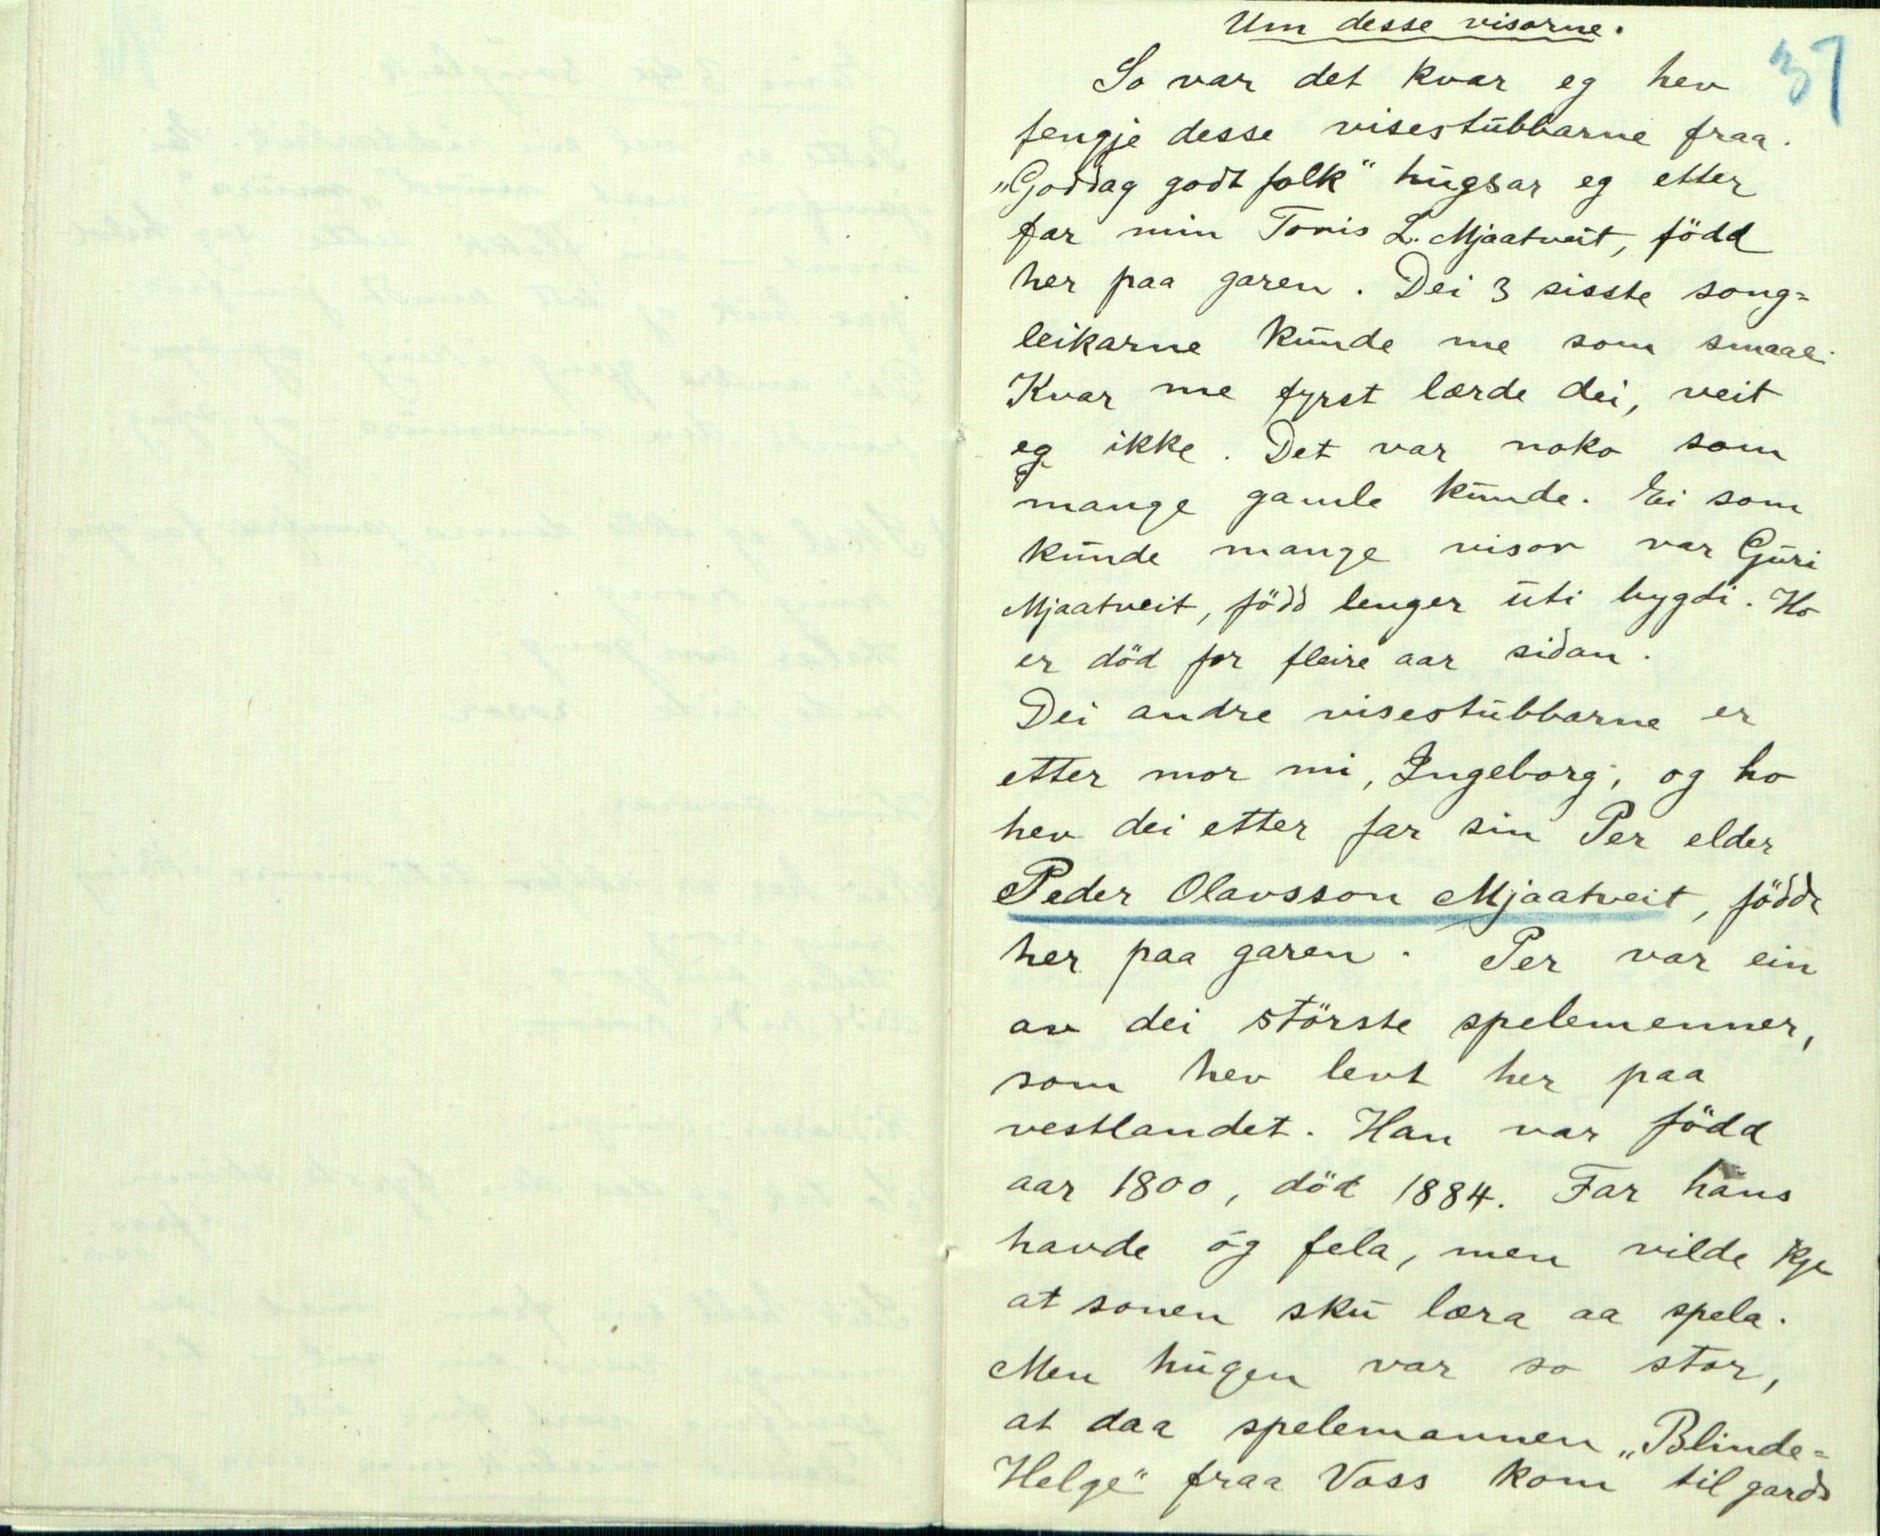 Um desse visorne.
37
So var det kvar eg hev
fengje desse visestubbarne fraa.
„Goddag godt folk" hugsar eg etter
far min Tonis L. Mjaatveit, född
her paa garen. Dei 3 sisste song=
leikarne kunde me som smaae.
Kvar me fyrst lærde dei, veit
eg ikke. Det var noko som
mange gamle kunde. Ei som
kunde mange visor var Guri
Mjaatveit, född lenger uti bygdi. Ho
er död for fleire aar sidan.
Dei andre visestubbarne er
etter mor mi, Ingeborg, og ho
hev dei etter far sin Per elder
Peder Olavsson Mjaatveit, födde
her paa garen. Per var ein
av dei störste spelemenner,
som hev levt her paa
vestlandet. Han var född
aar 1800, död 1884. Far hans
havde óg fela, men vilde kje
at sonen sku læra aa spela.
Men hugen var so stor,
at daa spelemannen „Blinde=
Helge" fraa Voss kom til gards